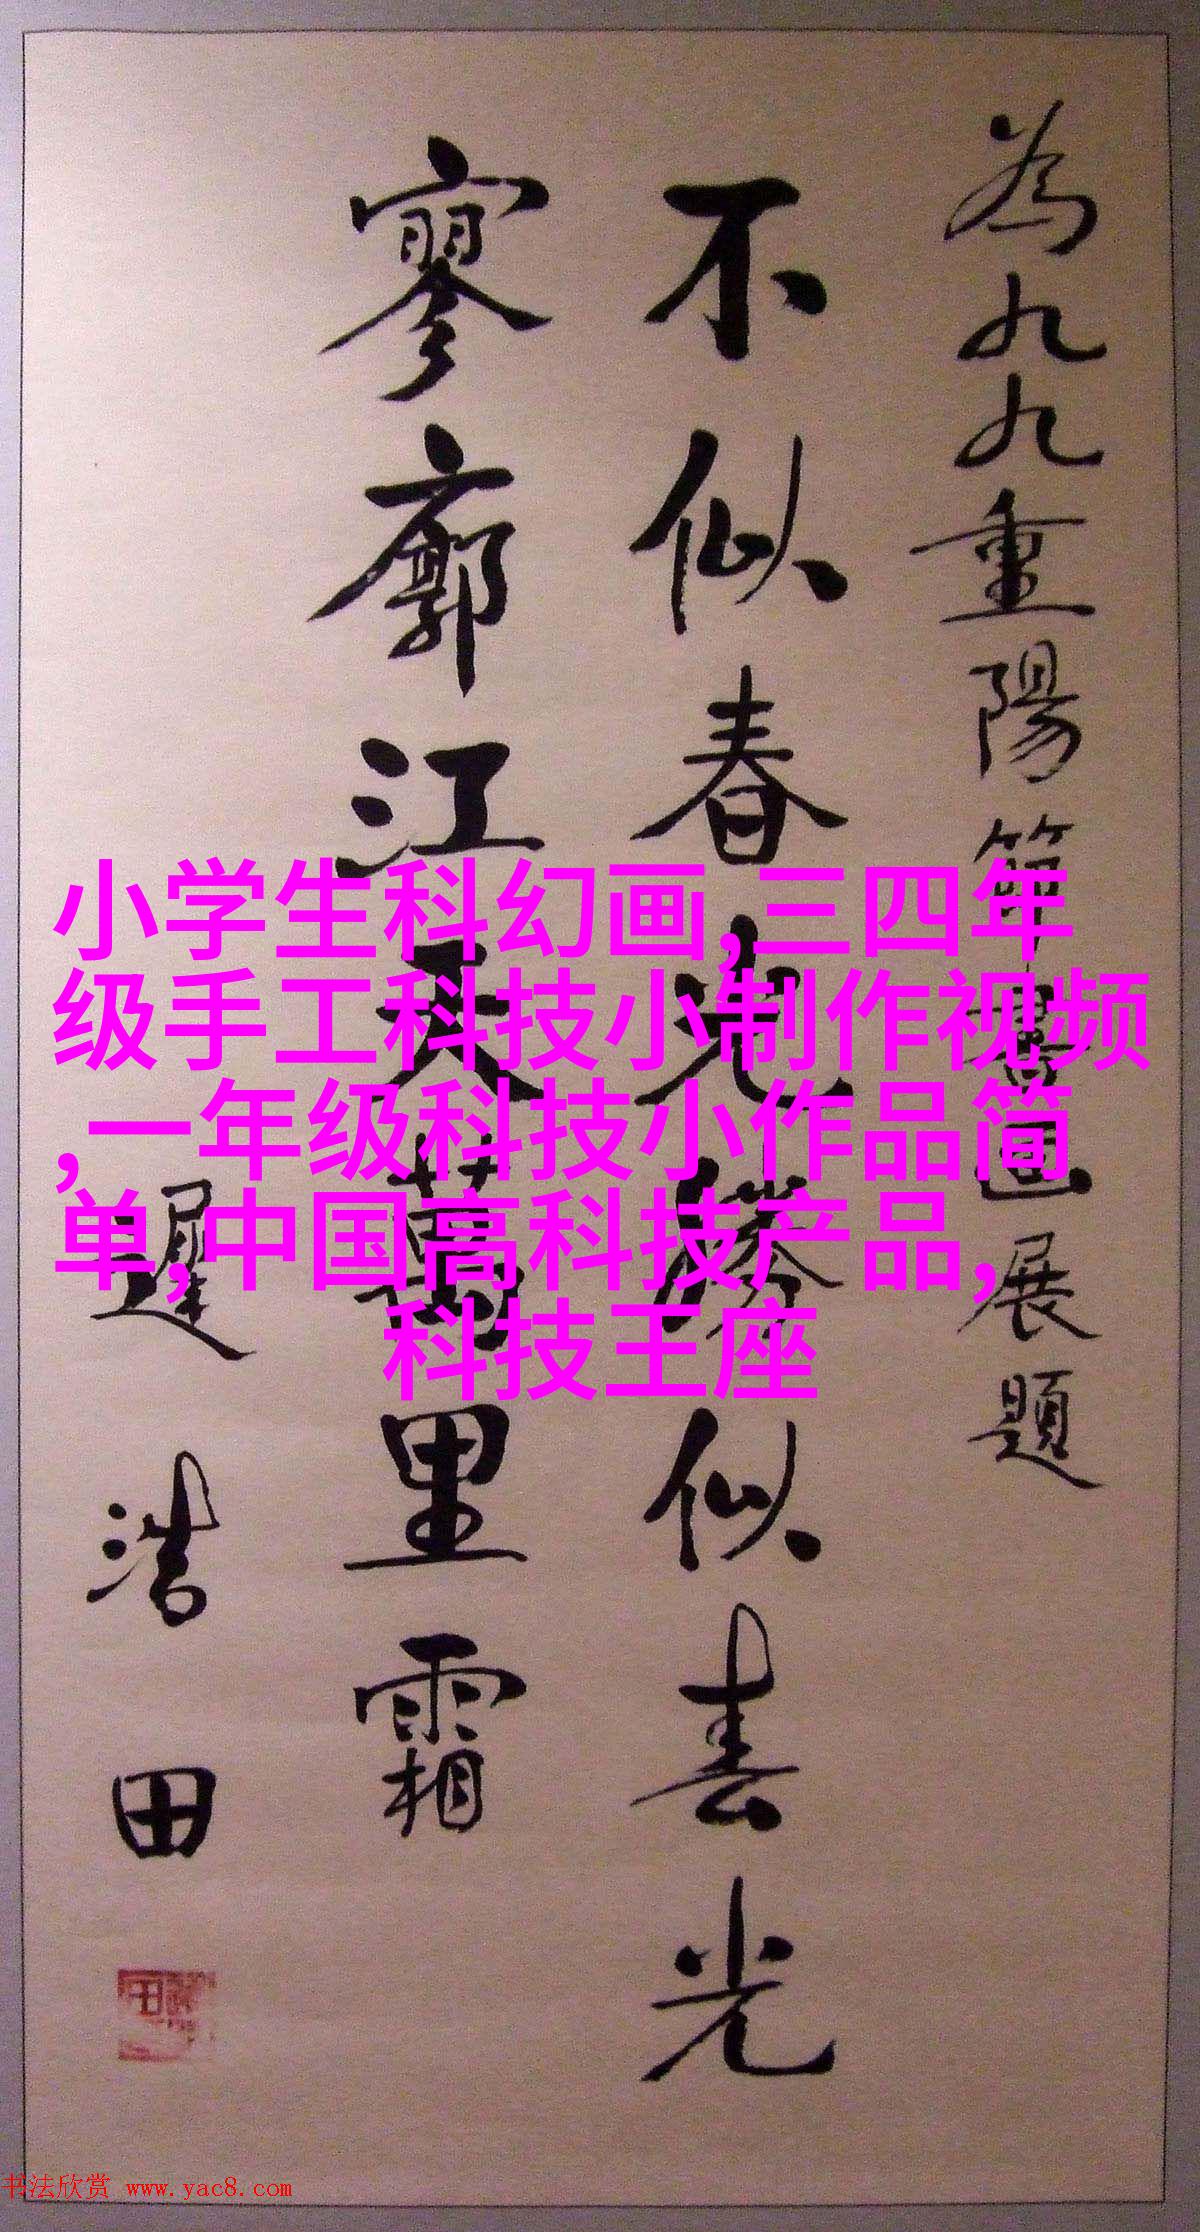 為九九重陽節書画展題
不似春光勝似春光
寥廓江天萬里霜
遲浩田
小学生科幻画,三四年
级手工科技小制作视频
,一年级科技小作品简
单,中国高科技产品,
科技王座
书法欣赏 www.yac8.com